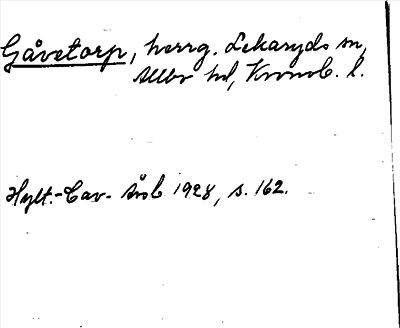 Gåvetorp, herrg. Lekaryds sn,
Allbo hd, Kronob. l.
Hylt.-Cav. Årsb 1928, s. 162.